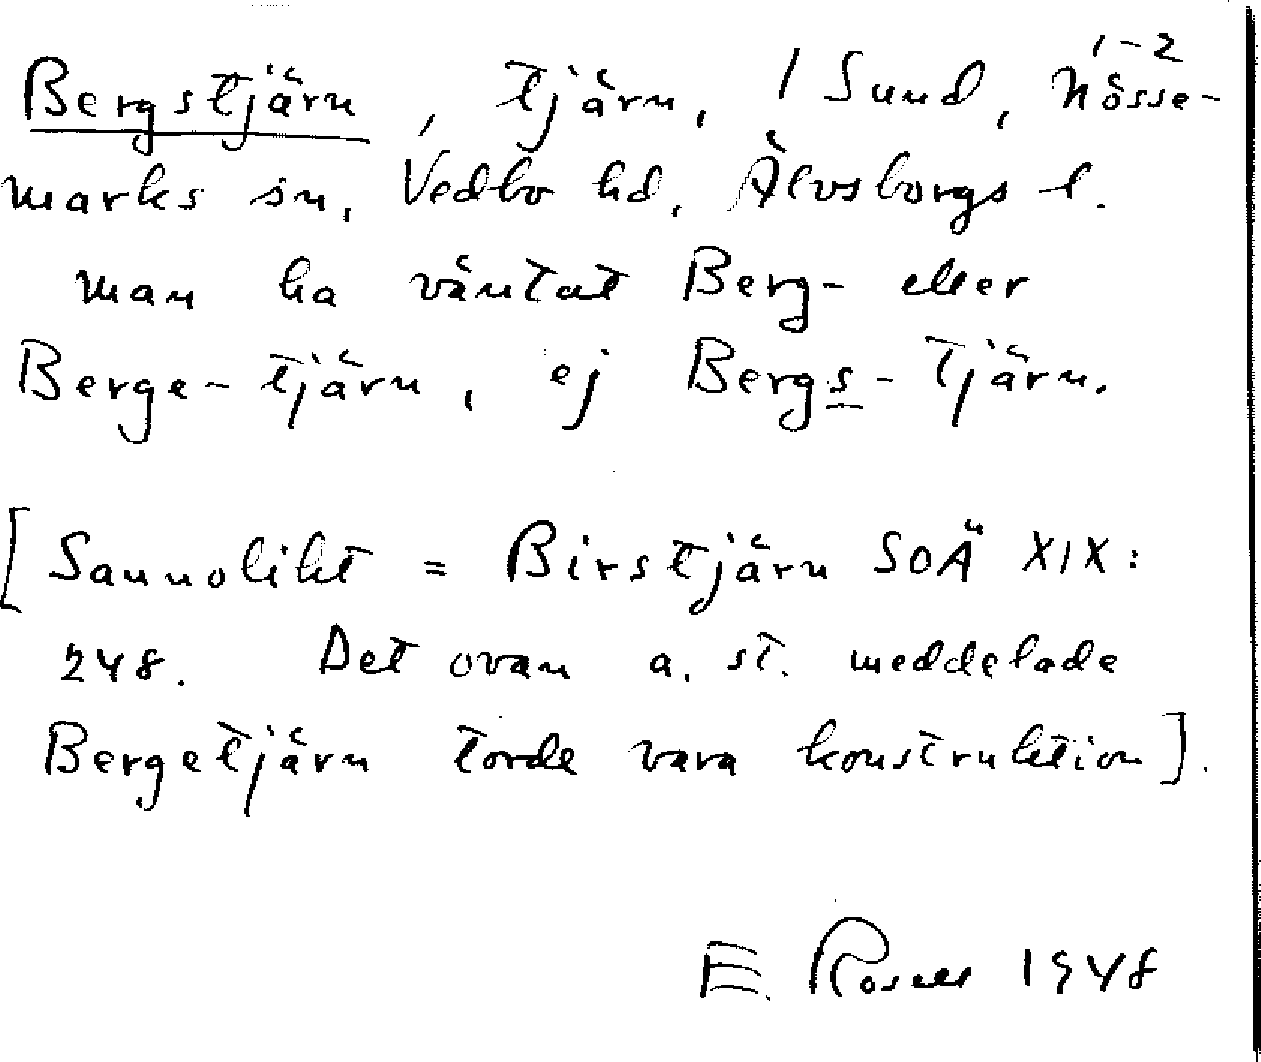 1-2
Bergstjärn, tjärn, / Sund, Nösse-
marks sn, Vedbo hd, Älvsborgs l.
man ha väntat Berg- eller
Berge-tjärn, ej Bergs-tjärn.
[Sannolikt = Birstjärn SOÄ XIX:
248. Det ovan a. st. meddelade
Bergetjärn torde vara konstruktion].
E. Rosell 1948